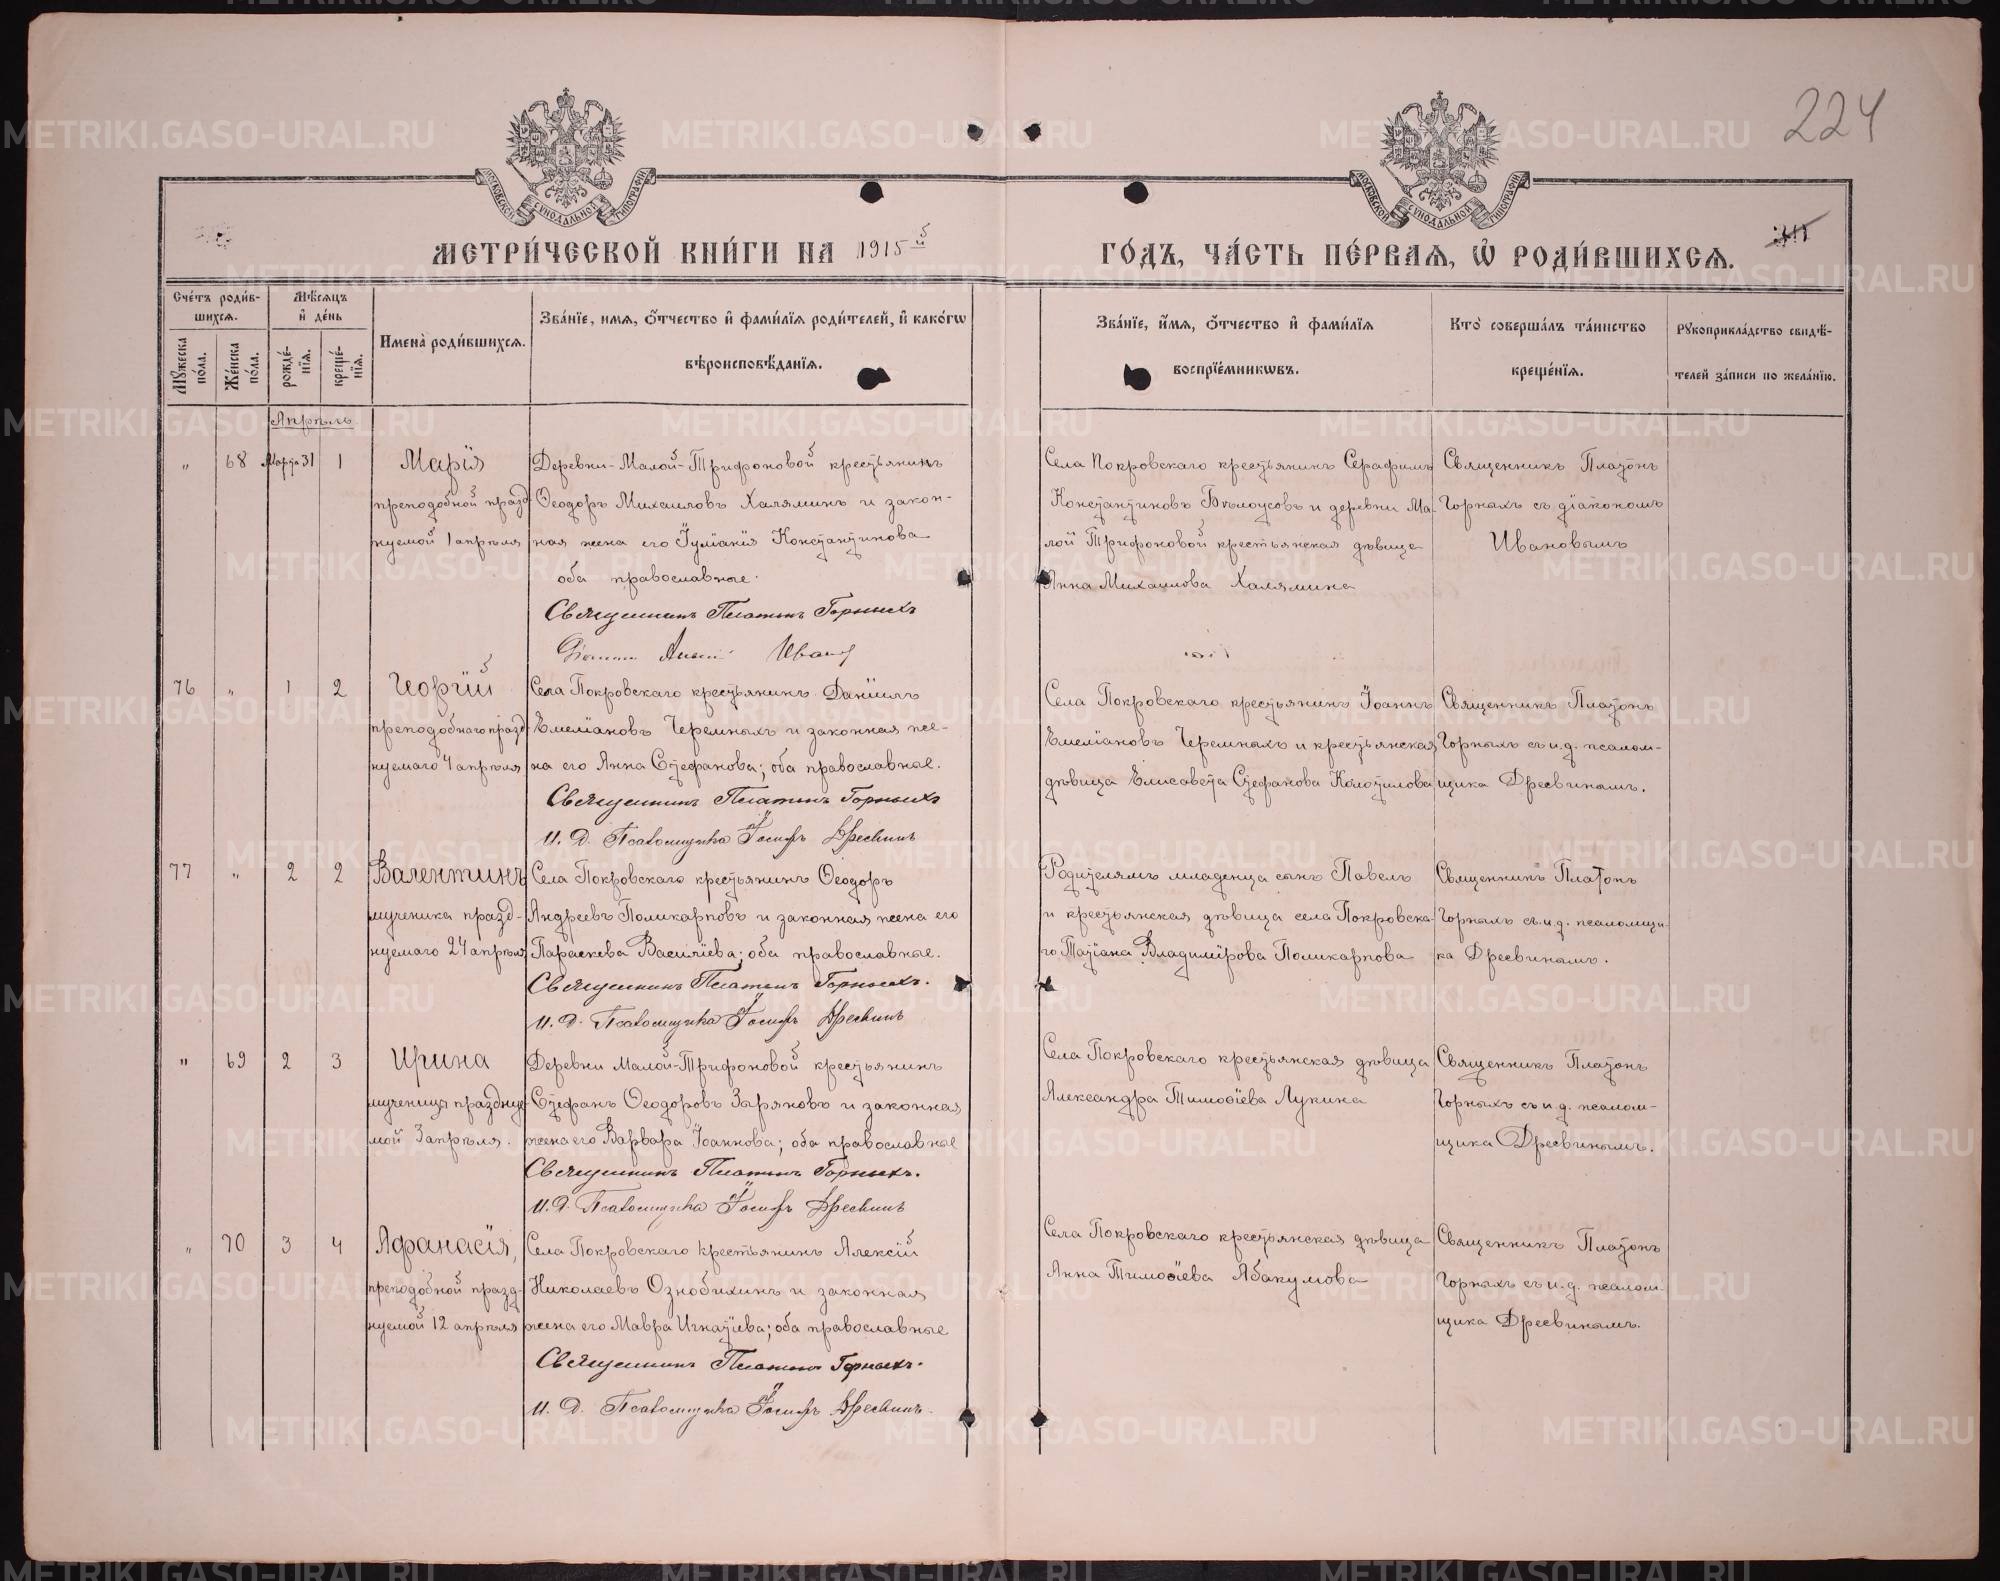 224
МОСКОВСКОЙ СѴНОДАЛЬНОЙ ТИПОГРАФІИ
МОСКОВСКОЙ СѴНОДАЛЬНОЙ ТИПОГРАФІИ
МЕТРИ́ЧЕСКОЙ КНИ́ГИ НА 1915й
ГО́ДЪ, ЧА́СТЬ ПЕ́РВАѦ, Ѡ҆ РОДИ́ВШИХСѦ.
Сче́тъ роди́в-
шихсѧ.
Мужеска по́ла.
Же́нска по́ла.
Мѣ́сѧцъ
и҆ де́нь
рожде́-
нїѧ.
креще́-
нїѧ.
Имена̀ роди́вшихсѧ.
Зва́нїе, имѧ, ѻ҆́тчество и҆ фами́лїѧ роди́телей, и҆ како́гѡ
вѣроисповѣ́данїѧ.
Зва́нїе, и҆́мѧ, ѻ҆́тчество и҆ фами́лїѧ
воспрїе́мникѡвъ.
Кто̀ соверша́лъ та́инство
креще́нїѧ.
Рукоприкла́дство свидѣ́-
телей за́писи по жела́нїю.
Апрѣль
„ 68 Марта 31 1
Марія
преподобной празд-
нуемой 1 апрѣля
Деревни-Малой-Трифоновой крестьянинъ
Ѳеодоръ Михаиловъ Халяминъ и закон-
ная жена его Іуліанія Константинова
оба православные.
Священникъ Платонъ Горныхъ
Села Покровскаго крестьянинъ Серафимъ
Константиновъ Бѣлоусовъ и деревни Ма-
лой Трифоновой крестьянская дѣвица
Анна Михаилова Халямина
Священникъ Платонъ
Горныхъ съ діакономъ
Ивановымъ
76 „ 1 2
Георгій
преподобнаго празд-
нуемаго 4 апрѣля
Села Покровскаго крестьянинъ Даніилъ
Емеліановъ Черемныхъ и законная же-
на его Анна Стефанова; оба православные.
Священникъ Платонъ Горныхъ
И. Д. Псаломщика Іосифъ Дресвинъ
Села Покровскаго крестьянинъ Іоаннъ
Емеліановъ Черемныхъ и крестьянская
дѣвица Елисавета Стефанова Колотилова
Священникъ Платонъ
Горныхъ съ и.д. псалом-
щика Дресвинымъ.
77 „ 2 2
Валентинъ
мученика празд-
нуемаго 24 апрѣля
Села Покровскаго крестьянинъ Ѳеодоръ
Андреевъ Поликарповъ и законная жена его
Параскева Василіева; оба православные.
Священникъ Платонъ Горныхъ.
И. Д. Псаломщика Іосифъ Дресвинъ
Родителямъ младенца сынъ Павелъ
и крестьянская дѣвица села Покровска-
го Татіана Владимірова Поликарпова
Священникъ Платонъ
Горныхъ съ и.д. псаломщи-
ка Дресвинымъ.
" 69 2 3
Ирина
мученицы праздн­уе-
мой 3 апрѣля.
Деревни Малой-Трифоновой крестьянинъ
Стефанъ Ѳеодоровъ Зыряновъ и законная
жена его Варвара Іоаннова; оба православные
Священникъ Платонъ Горныхъ.
И. Д. Псаломщика Іосифъ Дресвинъ
Села Покровскаго крестьянская дѣвица
Александра Тимоѳіева Лукина
Священникъ Платонъ
Горныхъ съ и.д. псалом-
щика Дресвинымъ.
„ 70 3 4
Афанасія,
преподобной празд-
нуемой 12 апрѣля
Села Покровскаго крестьянинъ Алексій
Николаевъ Ознобихинъ и законная
жена его Мавра Игнатіева; оба православные
Священникъ Платонъ Горныхъ.
И. Д. Псаломщика Іосифъ Дресвинъ.
Села Покровскаго крестьянская дѣвица
Анна Тимоѳіева Абакумова
Священникъ Платонъ
Горныхъ съ и.д. псалом-
щика Дресвинымъ.
METRIKI.GASO-URAL.RU